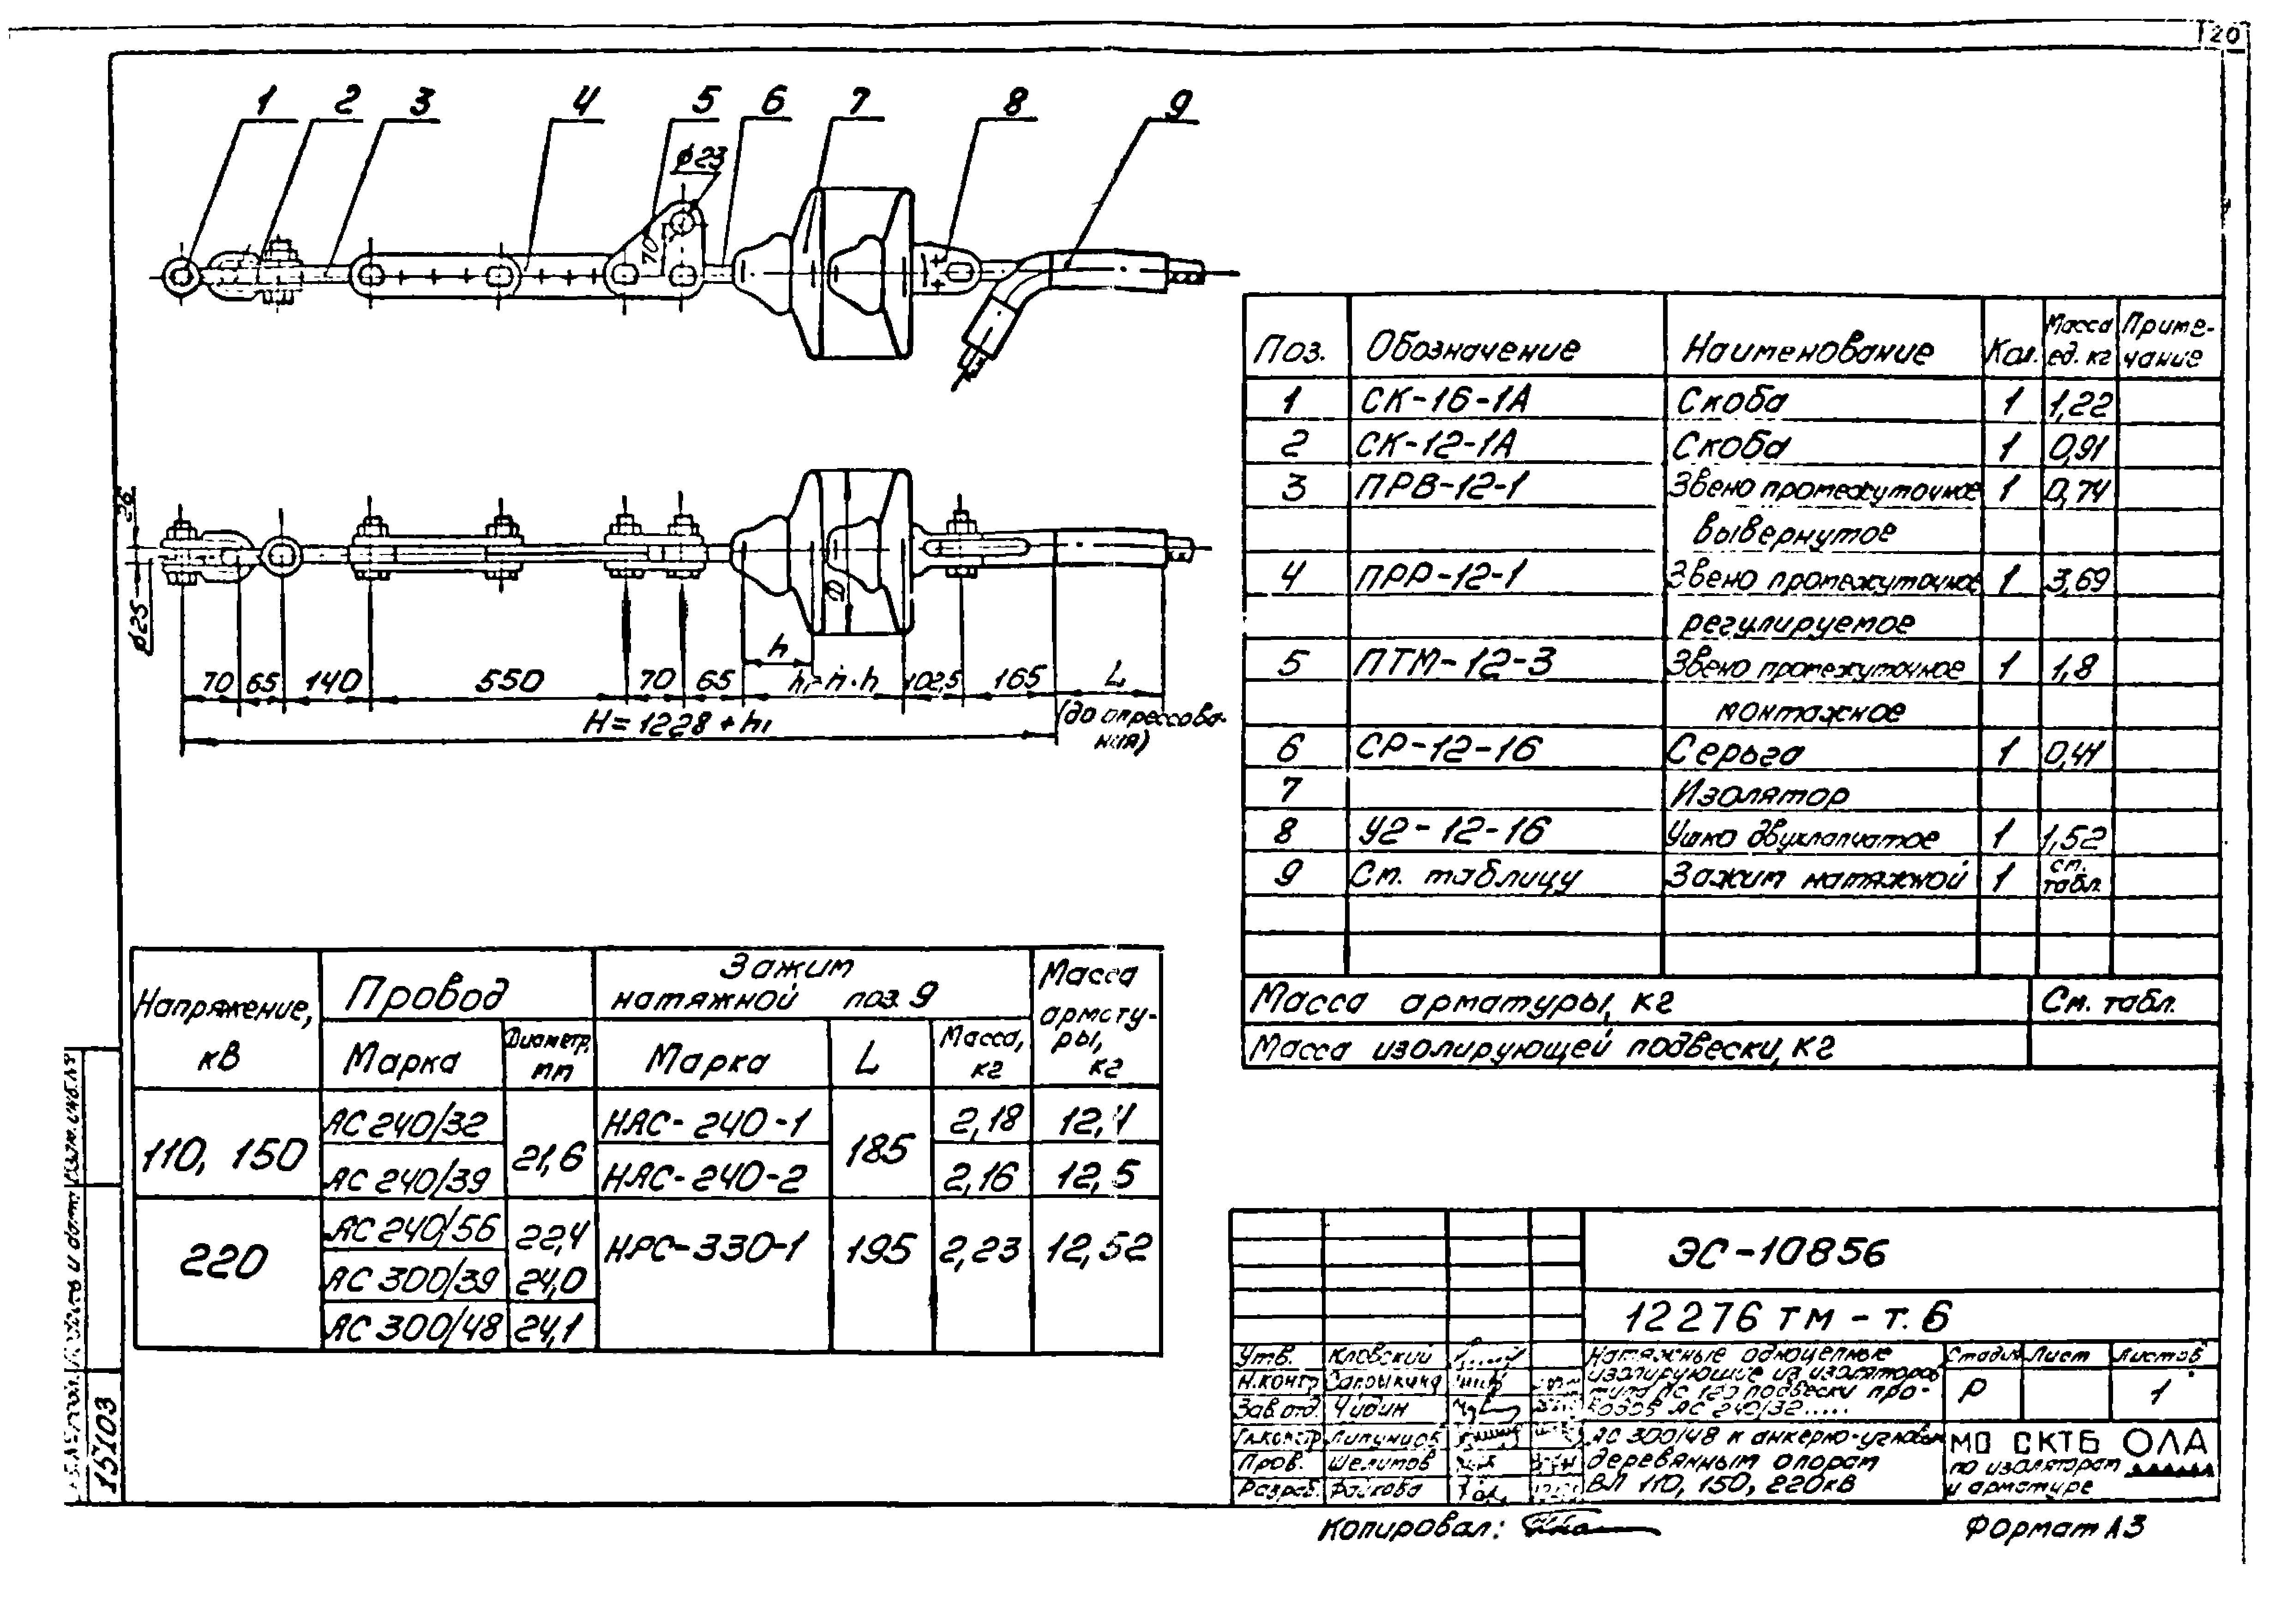 120
1 2 3 4 5 6 7 8 9
ϕ23
70
26
ϕ25
h
D
70 65 140 550 70 65 h₁=n·h 102,5 165 L
H=1228+h₁
(до опрессова-
ния)
Поз. Обозначение Наименование Кол. Масса ед. кг Приме-
чание
1 СК-16-1А Скоба 1 1,22
2 СК-12-1А Скоба 1 0,91
3 ПРВ-12-1 Звено промежуточное 1 0,74
вывернутое
4 ПРР-12-1 Звено промежуточное 1 3,69
регулируемое
5 ПТМ-12-3 Звено промежуточное 1 1,8
монтажное
6 СР-12-16 Серьга 1 0,41
7 Изолятор
8 У2-12-16 Ушко двухлапчатое 1 1,52
9 См. таблицу Зажим натяжной 1 см. табл.
Масса арматуры, кг См. табл.
Масса изолирующей подвески, кг
Напряжение,
кВ
Провод
Зажим
натяжной поз. 9
Масса
армату-
ры,
кг
Марка Диаметр, мм Марка L Масса, кг
110, 150 АС 240/32 21,6 НАС-240-1 185 2,18 12,4
АС 240/39 НАС-240-2 2,16 12,5
220 АС 240/56 22,4 НАС-330-1 195 2,23 12,52
АС 300/39 24,0
АС 300/48 24,1
15103
ЭС-10856
12276 тм - т. 6
Утв. Кловский
Н.контр
Зав.отд. Чидин
Гл.констр
Пров. Шелипов
Разраб. Файкова
Натяжные одноцепные
изолирующие из изоляторов
типа ПС 120 подвески про-
водов АС 240/32.....
АС 300/48 к анкерно-угловым
деревянным опорам
ВЛ 110, 150, 220кВ
Стадия Лист Листов
Р 1
МО СКТБ ОЛА
по изоляторам
и арматуре
Копировал:
Формат А3